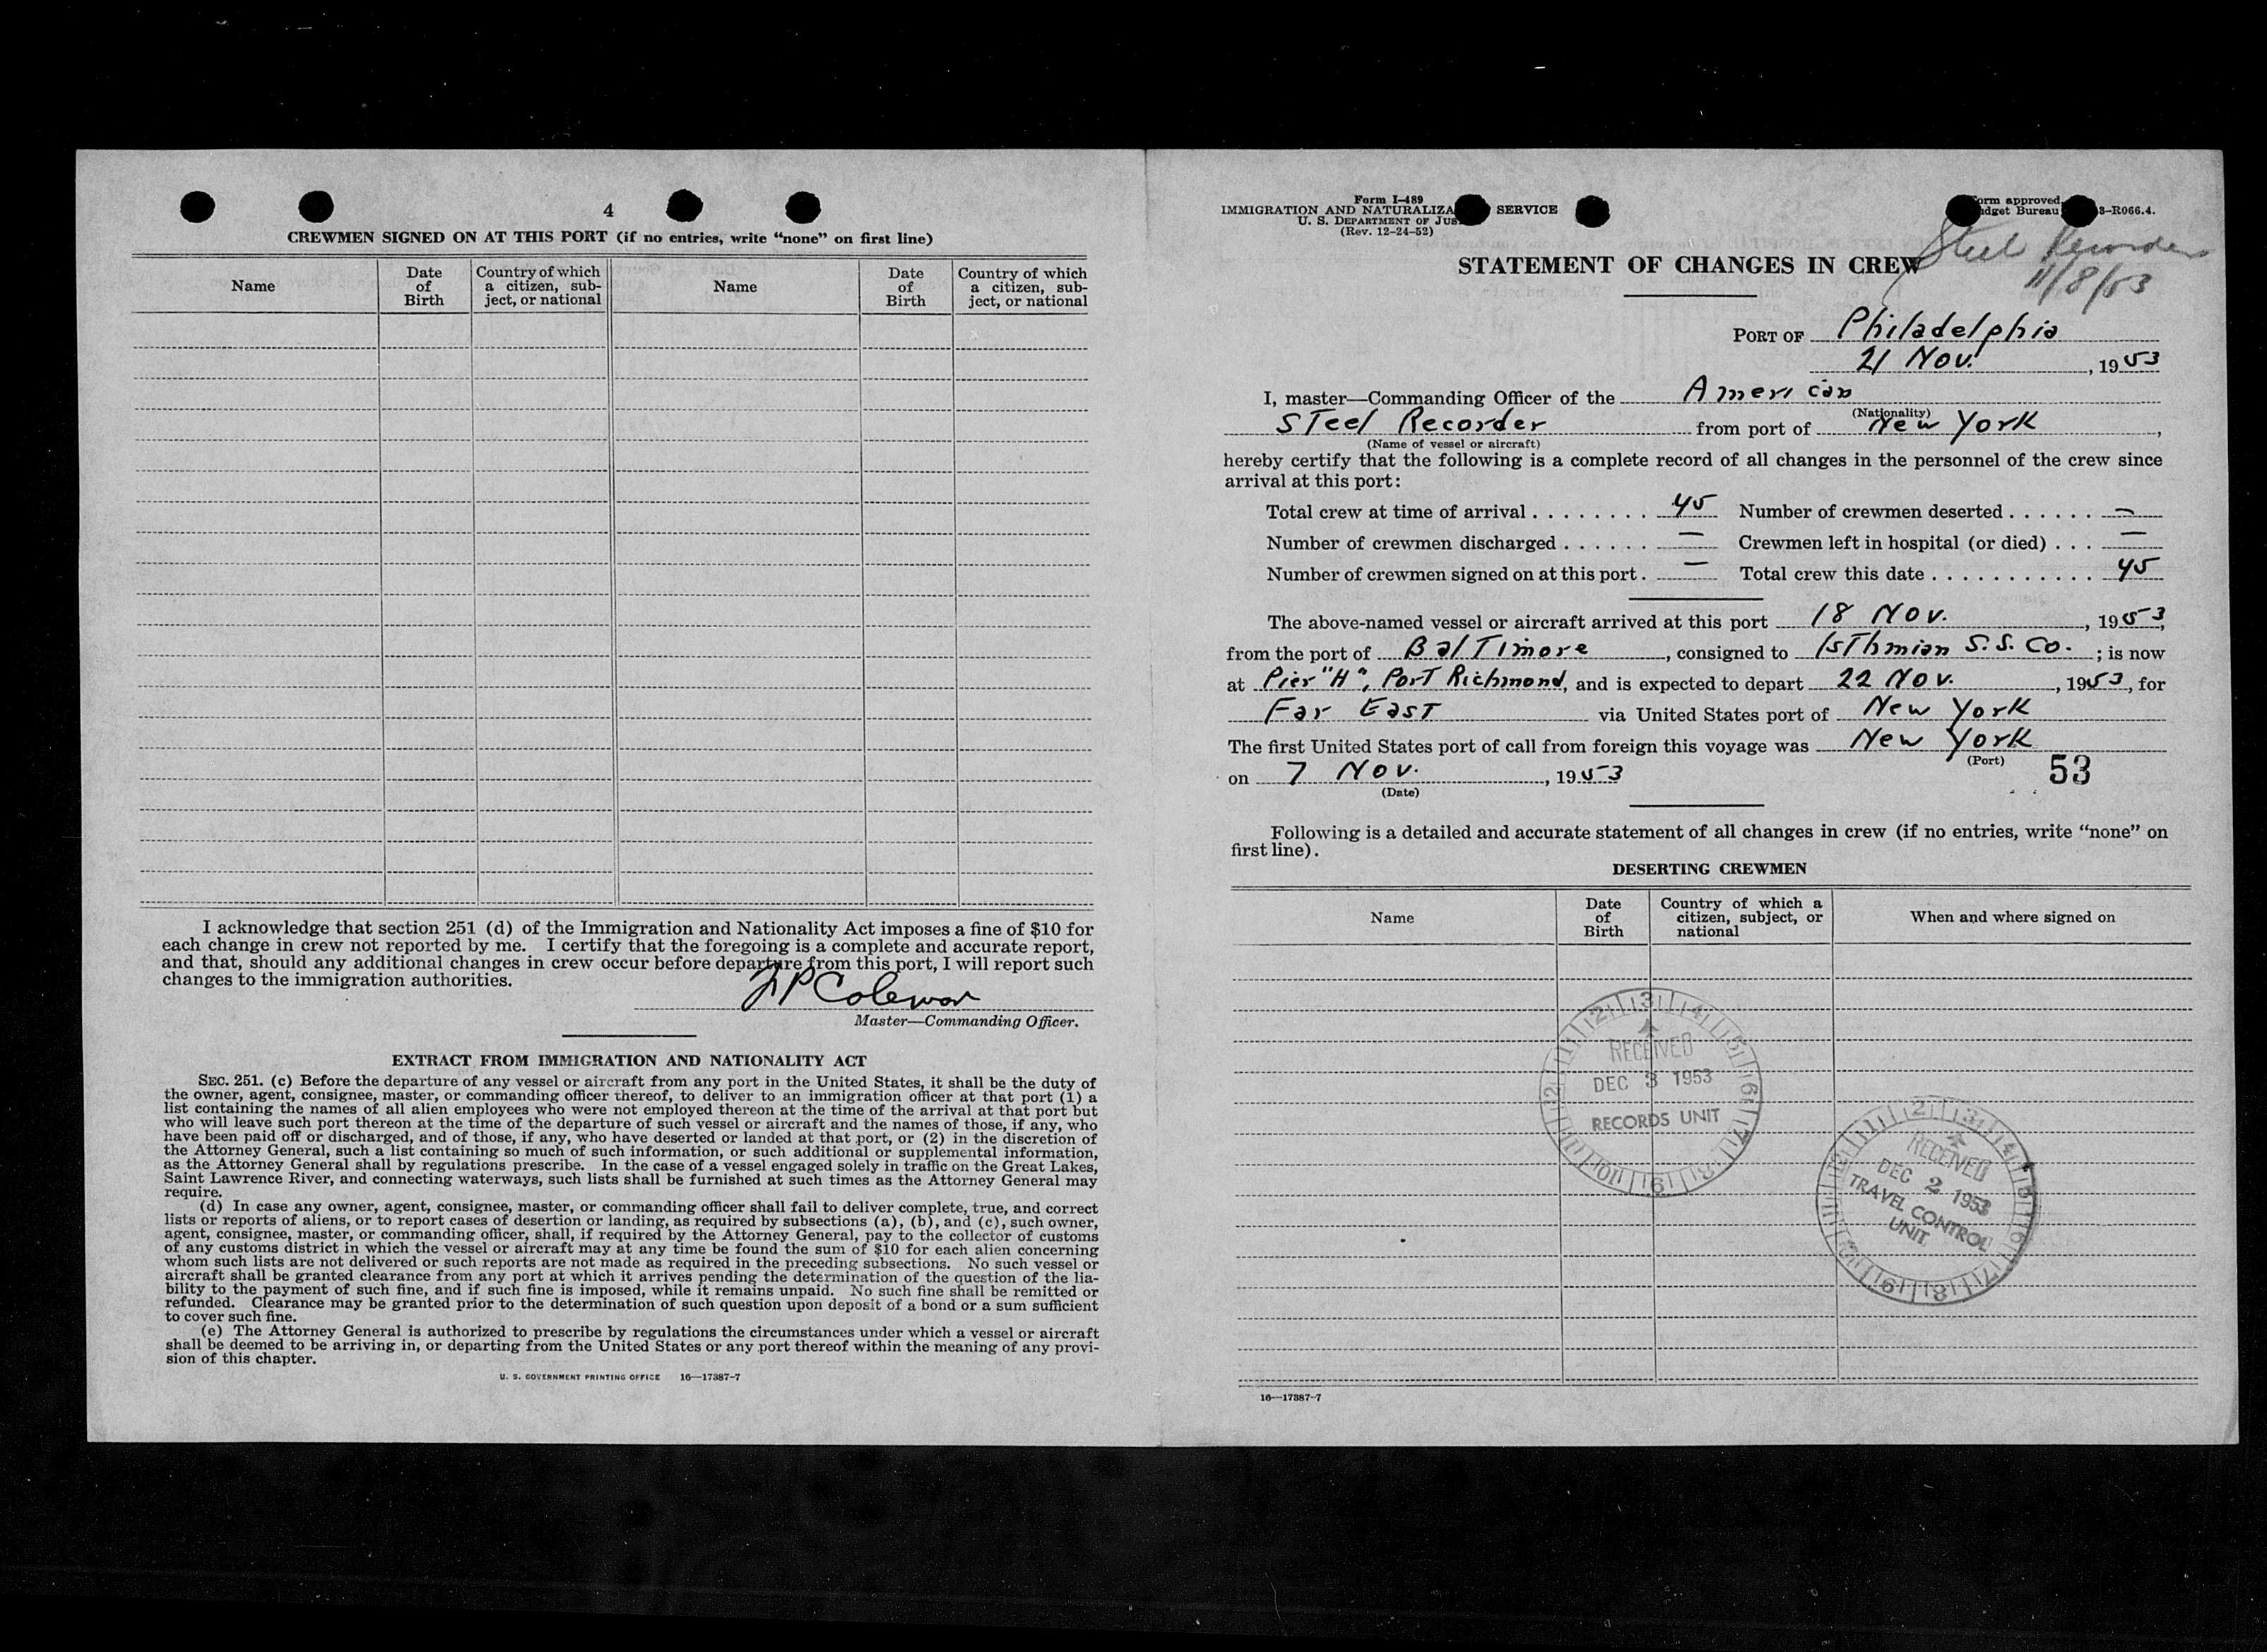 4
CREWMEN SIGNED ON AT THIS PORT (if no entries, write “none” on first line)
Name
Date of Birth
Country of which a citizen, subject, or national
Name
Date of Birth
Country of which a citizen, subject, or national
I acknowledge that section 251 (d) of the Immigration and Nationality Act imposes a fine of $10 for
each change in crew not reported by me. I certify that the foregoing is a complete and accurate report,
and that, should any additional changes in crew occur before departure from this port, I will report such
changes to the immigration authorities.
Master—Commanding Officer.
EXTRACT FROM IMMIGRATION AND NATIONALITY ACT
SEC. 251. (c) Before the departure of any vessel or aircraft from any port in the United States, it shall be the duty of
the owner, agent, consignee, master, or commanding officer thereof, to deliver to an immigration officer at that port (1) a
list containing the names of all alien employees who were not employed thereon at the time of the arrival at that port but
who will leave such port thereon at the time of the departure of such vessel or aircraft and the names of those, if any, who
have been paid off or discharged, and of those, if any, who have deserted or landed at that port, or (2) in the discretion of
the Attorney General, such a list containing so much of such information, or such additional or supplemental information,
as the Attorney General shall by regulations prescribe. In the case of a vessel engaged solely in traffic on the Great Lakes,
Saint Lawrence River, and connecting waterways, such lists shall be furnished at such times as the Attorney General may
require.
(d) In case any owner, agent, consignee, master, or commanding officer shall fail to deliver complete, true, and correct
lists or reports of aliens, or to report cases of desertion or landing, as required by subsections (a), (b), and (c), such owner,
agent, consignee, master, or commanding officer, shall, if required by the Attorney General, pay to the collector of customs
of any customs district in which the vessel or aircraft may at any time be found the sum of $10 for each alien concerning
whom such lists are not delivered or such reports are not made as required in the preceding subsections. No such vessel or
aircraft shall be granted clearance from any port at which it arrives pending the determination of the question of the lia-
bility to the payment of such fine, and if such fine is imposed, while it remains unpaid. No such fine shall be remitted or
refunded. Clearance may be granted prior to the determination of such question upon deposit of a bond or a sum sufficient
to cover such fine.
(e) The Attorney General is authorized to prescribe by regulations the circumstances under which a vessel or aircraft
shall be deemed to be arriving in, or departing from the United States or any port thereof within the meaning of any provi-
sion of this chapter.
U. S. GOVERNMENT PRINTING OFFICE 16—17387-7
Form I-489
IMMIGRATION AND NATURALIZA SERVICE
U. S. DEPARTMENT OF JUS
(Rev. 12-24-52)
orm approved.
dget Bureau 3-R066.4.
Steel Recorder
11/8/53
STATEMENT OF CHANGES IN CREW
PORT OF Philadelphia
21 Nov., 1953
I, master—Commanding Officer of the American
(Nationality)
Steel Recorder from port of New York,
(Name of vessel or aircraft)
hereby certify that the following is a complete record of all changes in the personnel of the crew since
arrival at this port:
Total crew at time of arrival . . . . . . . . 45 Number of crewmen deserted . . . . . . —
Number of crewmen discharged . . . . . . — Crewmen left in hospital (or died) . . . —
Number of crewmen signed on at this port . — Total crew this date . . . . . . . . . . . 45
The above-named vessel or aircraft arrived at this port 18 Nov., 1953,
from the port of Baltimore, consigned to Isthmian S.S. Co.; is now
at Pier "H", Port Richmond, and is expected to depart 22 Nov., 1953, for
Far East via United States port of New York
The first United States port of call from foreign this voyage was New York
(Port)
on 7 Nov., 1953
(Date)
53
Following is a detailed and accurate statement of all changes in crew (if no entries, write “none” on
first line).
DESERTING CREWMEN
Name
Date of Birth
Country of which a citizen, subject, or national
When and where signed on
RECEIVED
DEC 3 1953
RECORDS UNIT
RECEIVED
DEC 2 1953
TRAVEL CONTROL
UNIT
16—17387-7